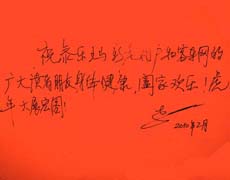 祝泰乐玛 和音乐网的
广大读者朋友身体健康，阖家欢乐！虎
年大展宏图！
2010年2月